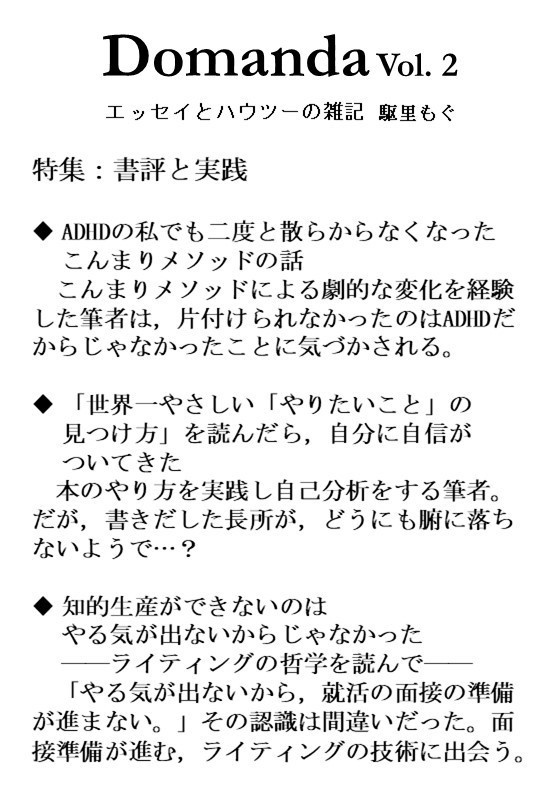 Domanda Vol. 2
エッセイとハウツーの雑記 駆里もぐ
特集：書評と実践
◆ ADHDの私でも二度と散らからなくなった
こんまりメソッドの話
こんまりメソッドによる劇的な変化を経験
した筆者は，片付けられなかったのはADHDだ
からじゃなかったことに気づかされる。
◆ 「世界一やさしい「やりたいこと」の
見つけ方」を読んだら，自分に自信が
ついてきた
本のやり方を実践し自己分析をする筆者。
だが，書きだした長所が，どうにも腑に落ち
ないようで…？
◆ 知的生産ができないのは
やる気が出ないからじゃなかった
――ライティングの哲学を読んで――
「やる気が出ないから，就活の面接の準備
が進まない。」その認識は間違いだった。面
接準備が進む，ライティングの技術に出会う。